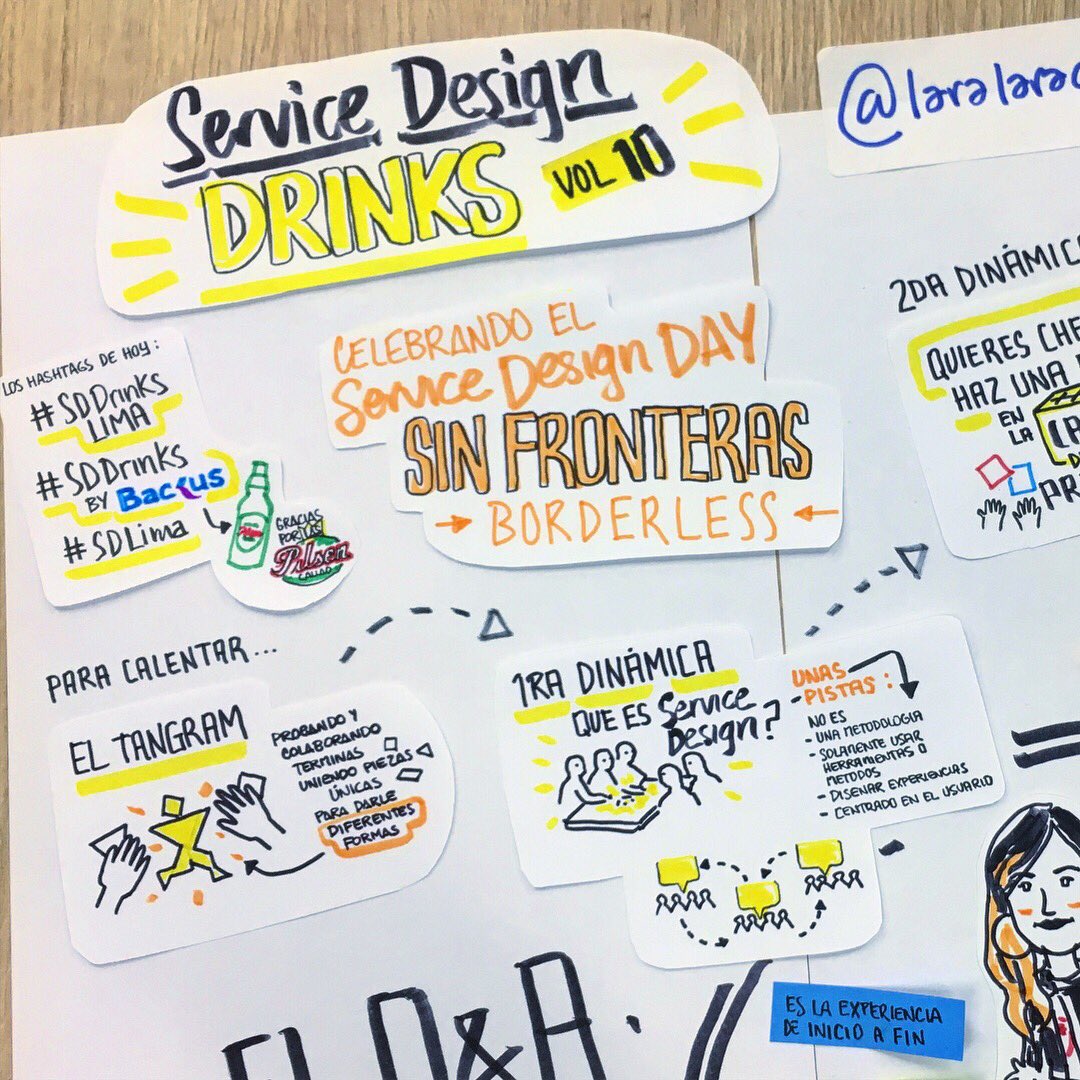 Service Design
DRINKS
VOL 10
@laralarac
LOS HASHTAGS DE HOY:
#SDDrinks
LIMA
#SDDrinks
BY Backus
#SDLima
GRACIAS
POR LAS
Pilsen
CALLAO
CELEBRANDO EL
Service Design DAY
SIN FRONTERAS
BORDERLESS
2DA DINÁMIC
QUIERES CHE
HAZ UNA
EN
LA
PR
PARA CALENTAR...
EL TANGRAM
PROBANDO Y
COLABORANDO
TERMINAS
UNIENDO PIEZAS
ÚNICAS
PARA DARLE
DIFERENTES
FORMAS
1RA DINÁMICA
QUE ES Service
Design?
UNAS
PISTAS:
NO ES
- UNA METODOLOGIA
- SOLAMENTE USAR
HERRAMIENTAS O
METODOS
- DISEÑAR EXPERIENCIAS
- CENTRADO EN EL USUARIO
El Q&A:
ES LA EXPERIENCIA
DE INICIO A FIN